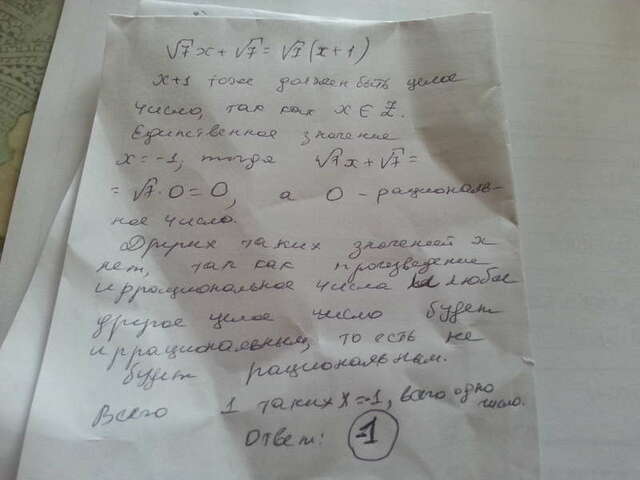 √7x + √7 = √7(x+1)
x+1 тоже должен быть целое
число, так как x ∈ Z.
Единственное значение
x = -1, тогда √7x + √7 =
= √7 · 0 = 0, а 0 - рациональ-
ное число.
Других таких значений x
нет, так как произведение
иррациональное числа на любое
другое целое число будет
иррациональным, то есть не
будет рациональным.
Всего 1 таких x=-1, всего одно
число.
Ответ: -1